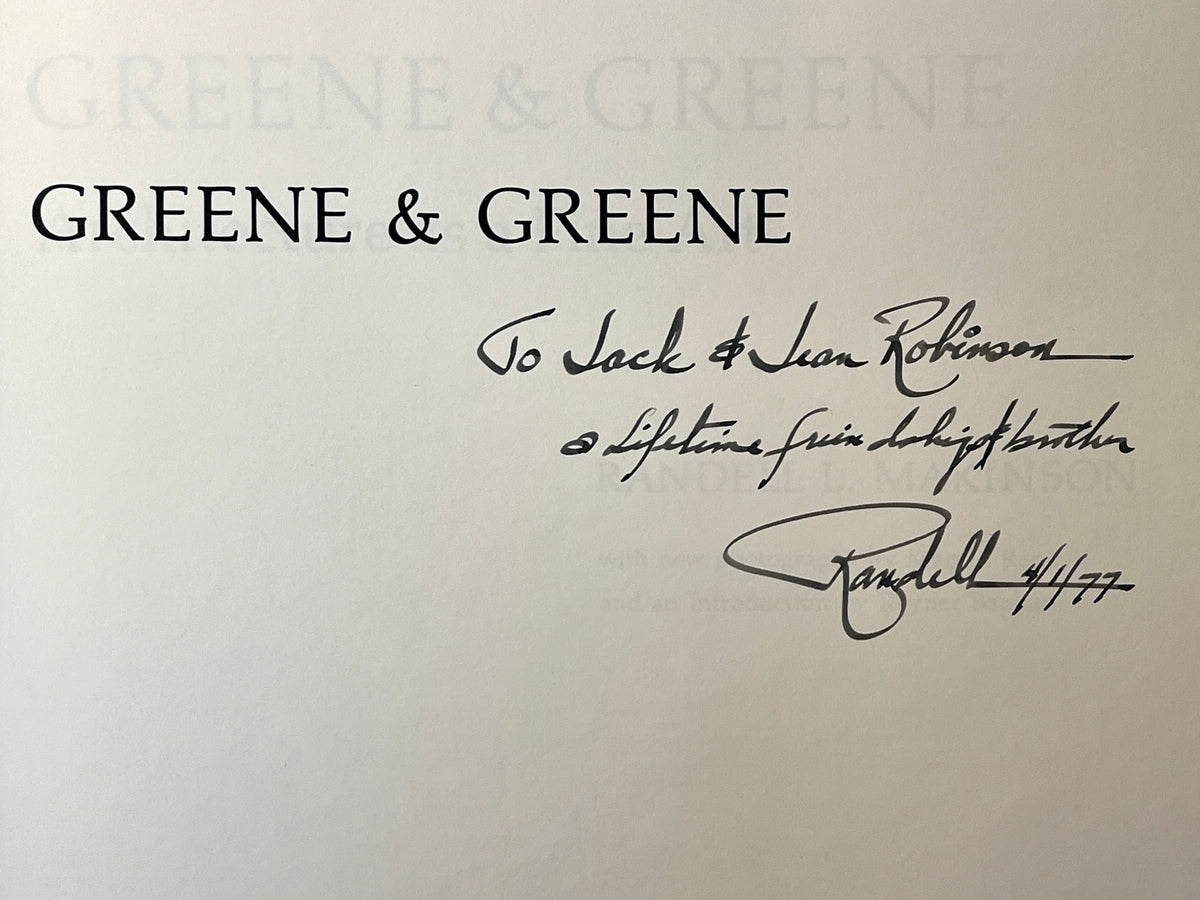 GREENE & GREENE
GREENE & GREENE
To Jack & Jean Robinson
a Lifetime friendship & brother
RANDELL L. MAKINSON
with new photograph
Randell 4/1/77
and an Introduction by Reyner